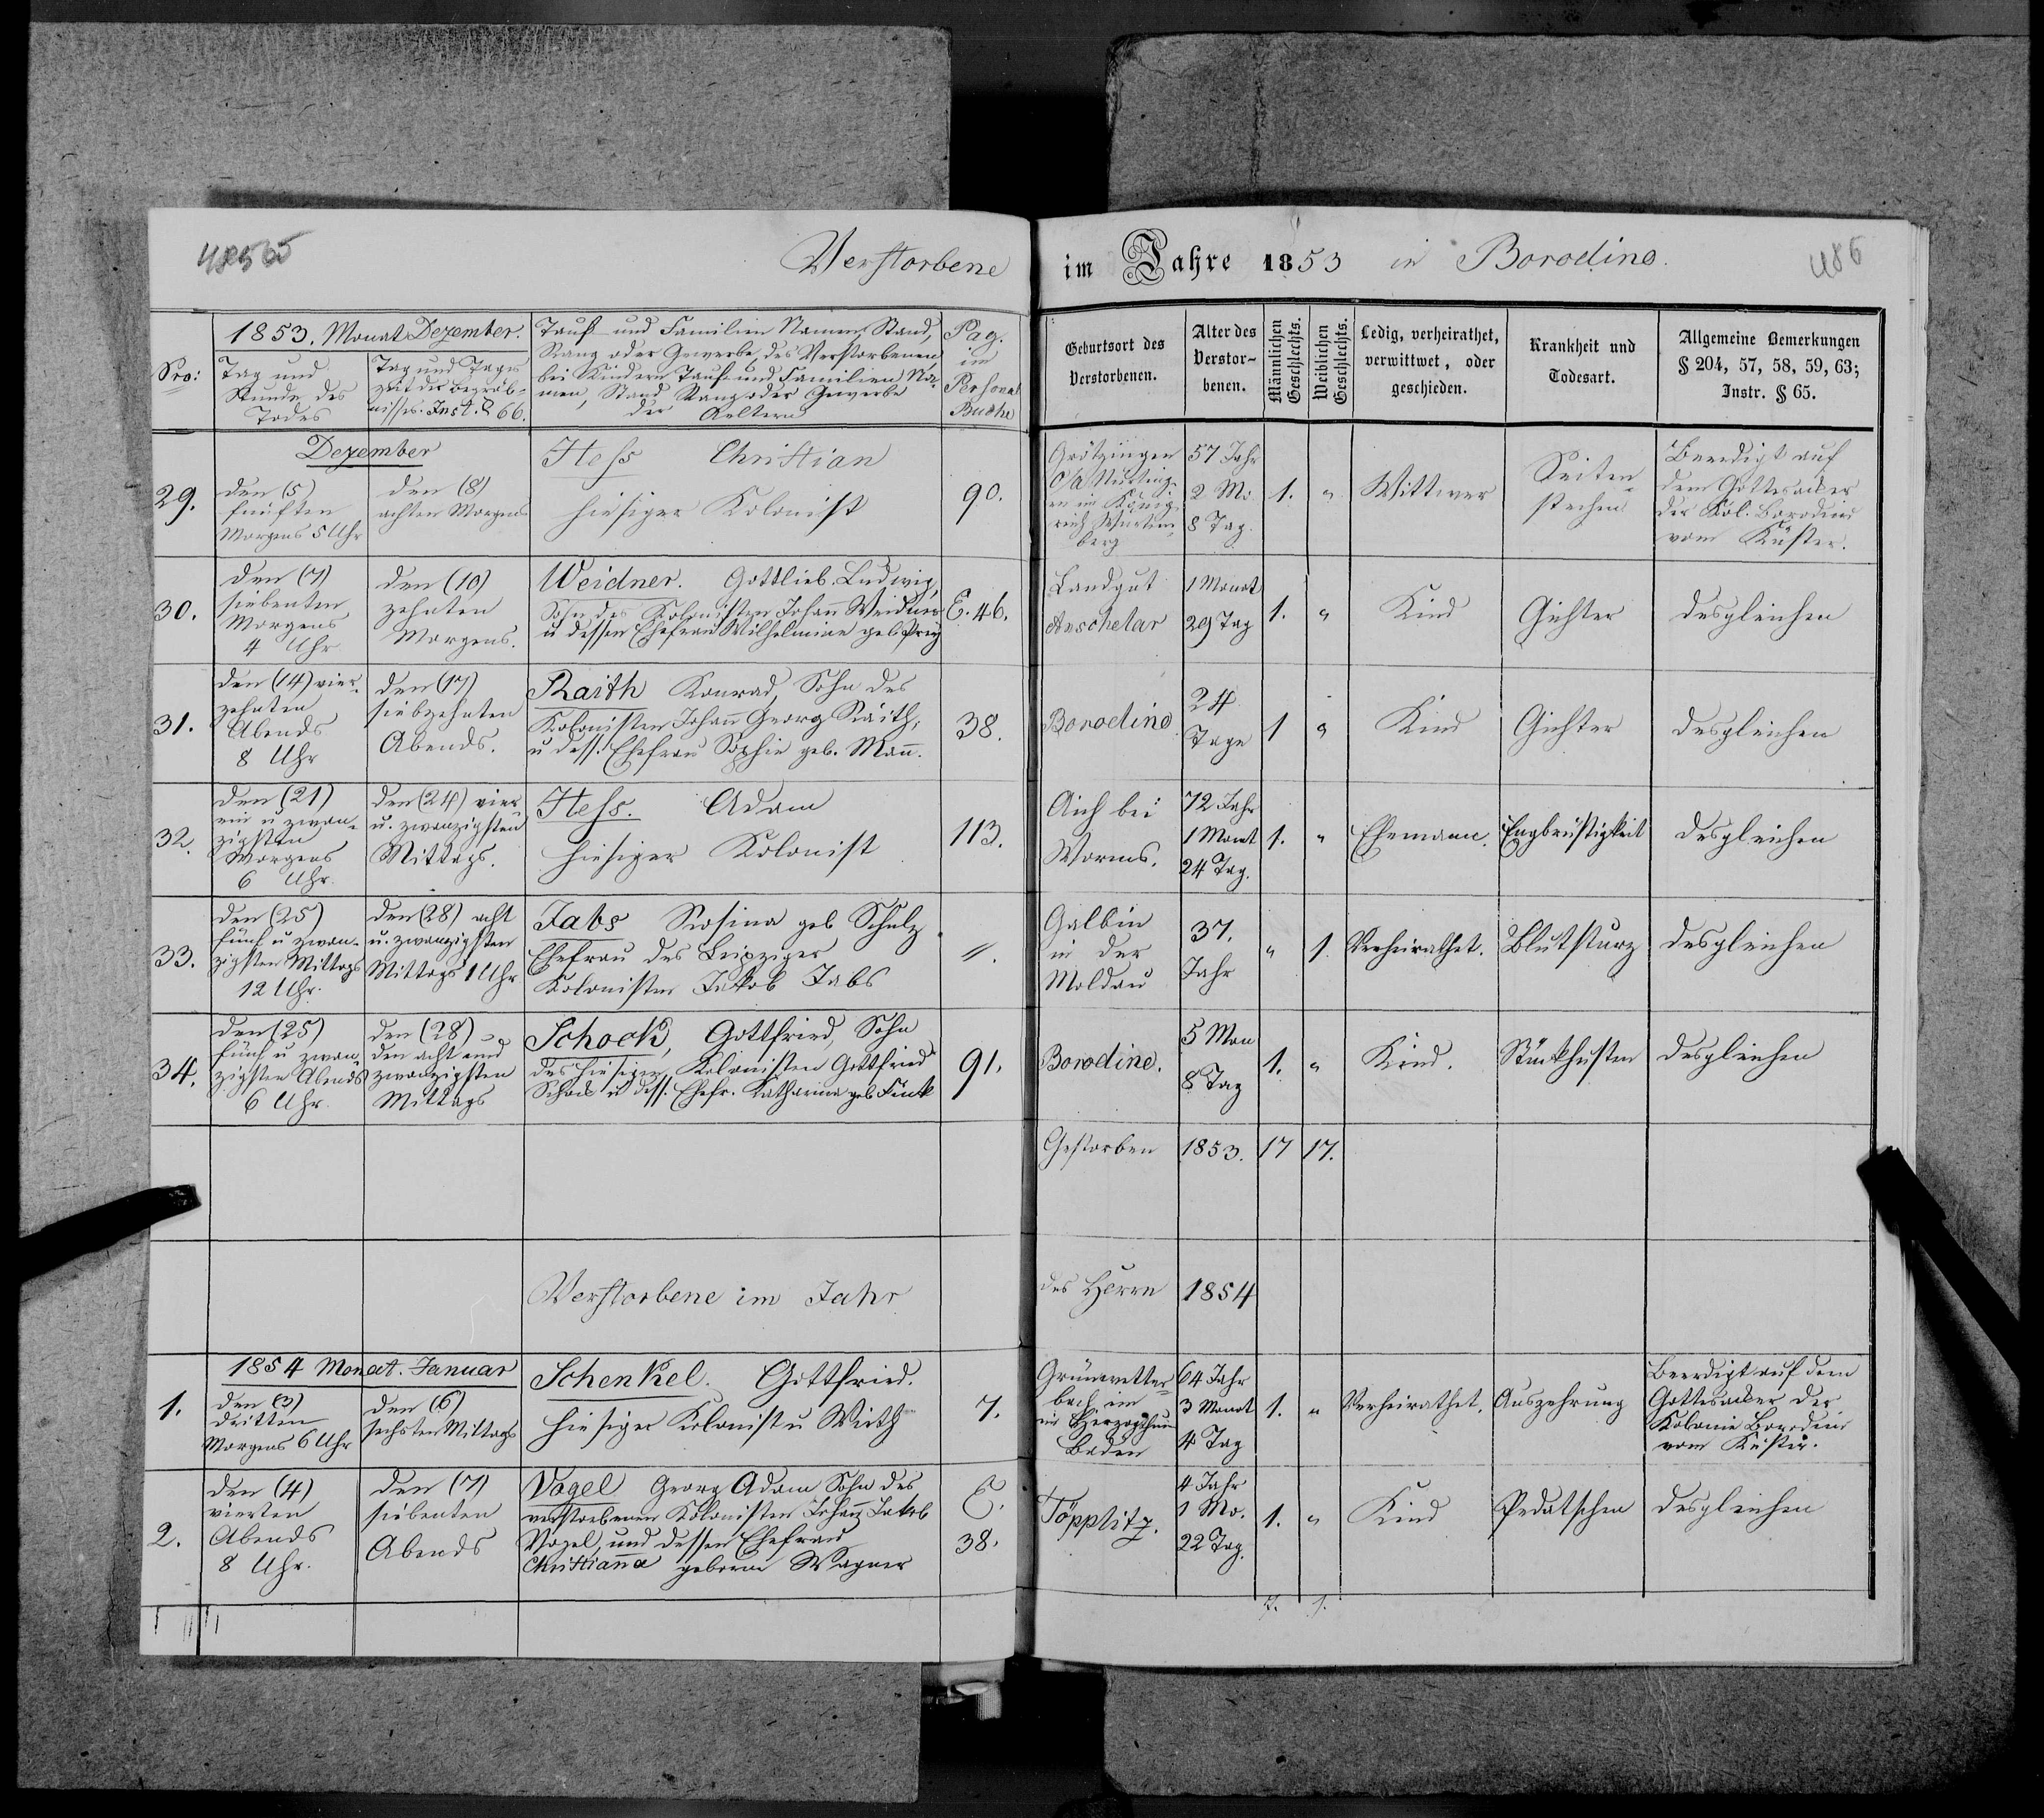 48565
Verstorbene
im Jahre 1853 in Borodino.
486
Nro:
1853. Monat Dezember.
Tag und
Stunde des
Todes
Tag und Tages
zeit der Begräb-
nisses. Inst. § 66.
Tauf und Familien Namen, Stand,
Rang oder Gewerbe, des Verstorbenen,
bei Kindern Tauf und Familien Na-
men, Stand Rang oder Gewerbe
der Aeltern
Pag.
im
Personal
Buche
Geburtsort des
Verstorbenen.
Alter des
Verstor-
benen.
Männlichen
Geschlechts.
Weiblichen
Geschlechts.
Ledig, verheirathet,
verwittwet, oder
geschieden.
Krankheit und
Todesart.
Allgemeine Bemerkungen
§ 204, 57, 58, 59, 63;
Instr. § 65.
Dezember
29.
den (5)
fünften
Morgens 5 Uhr
den (8)
achten Morgens
Hess Christian
hiesiger Kolonist
90.
Grötzingen
O/A Nürting-
en im König
reich Würtem
berg
57 Jahr
2 Mo
8 Tag.
1.
"
Wittwer
Seiten-
stechen
Beerdigt auf
dem Gottesacker
der Kol. Borodino
vom Küster.
30.
den (7)
siebenten
Morgens
4 Uhr
den (10)
zehnten
Morgens.
Weidner. Gottlieb Ludwig,
Sohn des Kolonisten Johann Weidner
u dessen Ehefrau Wilhelmine geb
E. 46.
Landgut
1 Monat
29 Tag
1.
"
Kind
Gichter
desgleichen
31.
den (14) vier-
zehnten
Abends
8 Uhr
den (17)
siebzehnten
Abends.
Raith Konrad, Sohn des
Kolonisten Johann Georg Raith,
u dess. Ehefrau Sophie geb. Mann.
38.
Borodino
24
Tage
1
"
Kind
Gichter
desgleichen
32.
den (21)
ein u zwan-
zigsten
Morgens
6 Uhr.
den (24) vier
u. zwanzigsten
Mittags.
Hess. Adam
hiesiger Kolonist
113.
Aich bei
Worms.
72 Jahr
1 Monat
24 Tag.
1.
"
Ehemann.
Engbrüstigkeit
desgleichen
33.
den (25)
fünf u zwan-
zigsten Mittags
12 Uhr.
den (28) acht
u. zwanzigsten
Mittags 1 Uhr
Jabs Rosina geb Schulz
Ehefrau des Leipziger
Kolonisten Jakob Jabs
"
Galbin
in der
Moldau
37.
Jahr
"
1
Verheirathet.
Blutsturz
desgleichen
34.
den (25)
fünf u zwan
zigsten Abends
6 Uhr.
den (28)
den acht und
zwanzigsten
Mittags
Schock, Gottfried, Sohn
des hiesigen Kolonisten Gottfried
Schock u dess. Ehefr. Katharina geb Fink
91.
Borodino.
5 Mon
8 Tag
1.
"
Kind.
Stückhusten
desgleichen
Gestorben 1853. 17 17.
Verstorbene im Jahr
des Herrn 1854
1854 Monat. Januar
1.
den (3)
dritten
Morgens 6 Uhr
den (6)
sechsten Mittags
Schenkel. Gottfried.
hiesiger Kolonist u Wirth
7.
Grünwetter-
bach im
im Herzogthum
Baden
64 Jahr
3 Monat
4 Tag
1.
"
Verheirathet.
Auszehrung
Beerdigt auf dem
Gottesacker der
Kolonie Borodino
vom Küster.
2.
den (4)
vierten
Abends
8 Uhr.
den (7)
siebenten
Abends
Vogel Georg Adam Sohn des
verstorbenen Kolonisten Johann Jakob
Vogel, und dessen Ehefrau
Christianna geborene Wagner
E.
38.
Töpplitz.
4 Jahr
1 Mo.
22 Tag.
1.
"
Kind
Pedatschen
desgleichen